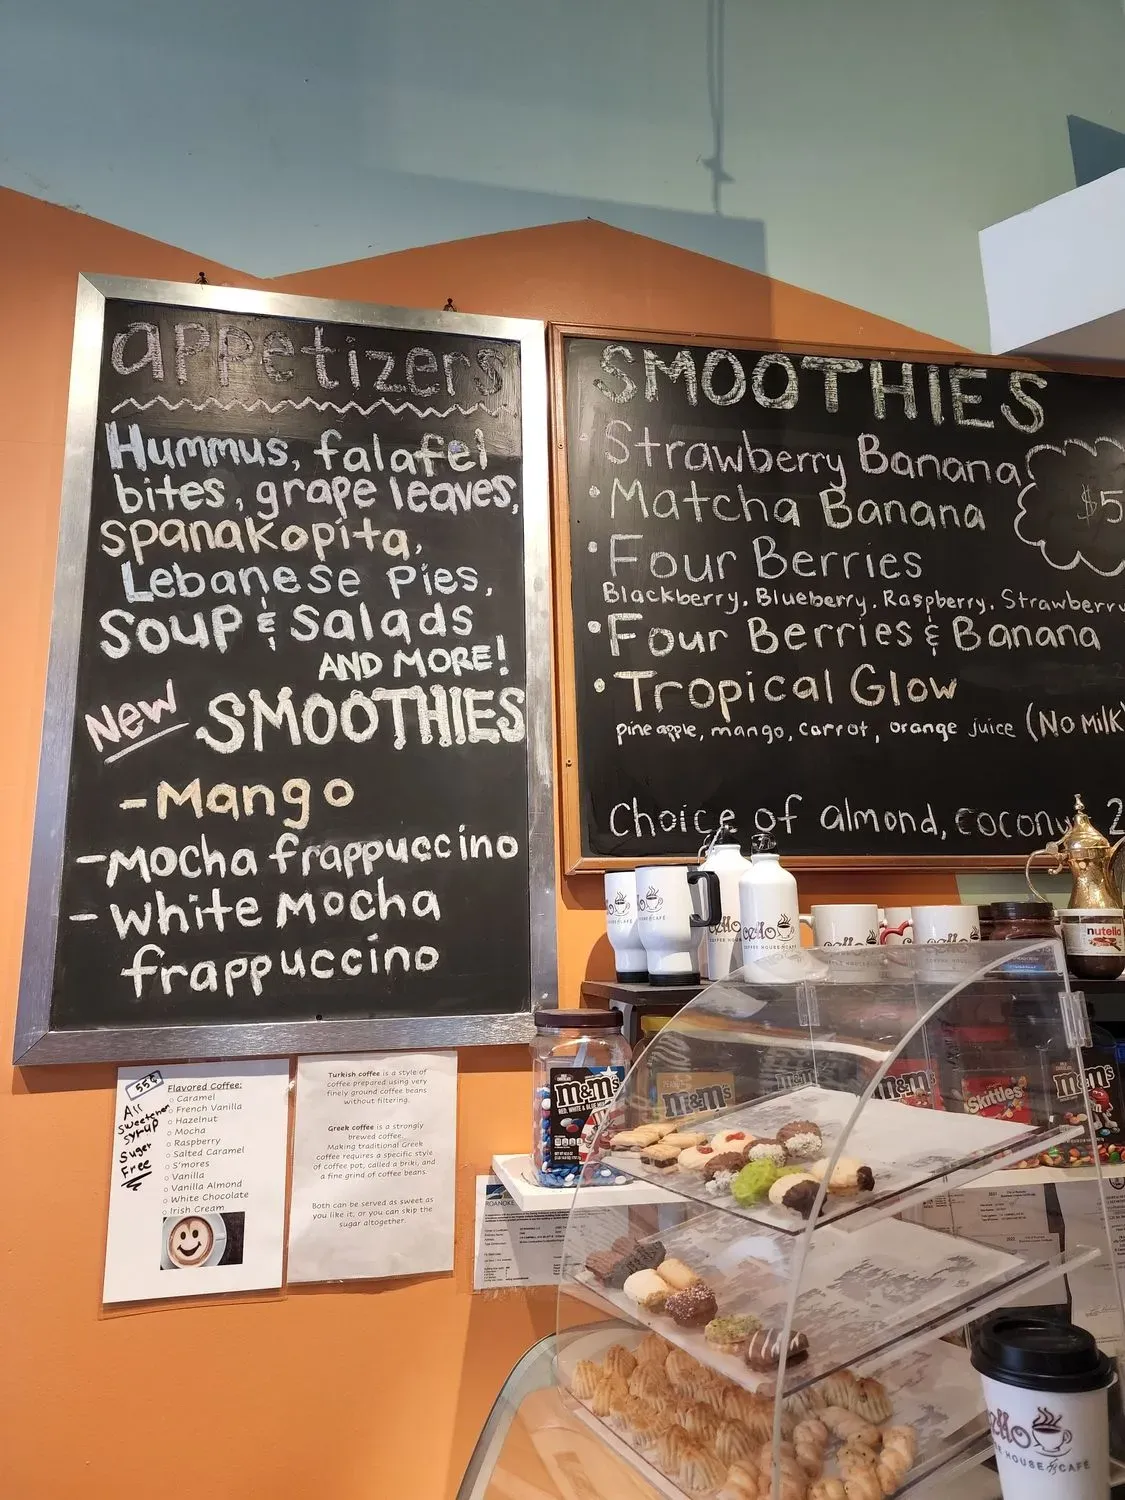 appetizers
Hummus, falafel
bites, grape leaves,
spanakopita,
Lebanese pies,
Soup & Salads
AND MORE!
New SMOOTHIES
- Mango
- Mocha frappuccino
- White Mocha
frappuccino
SMOOTHIES
Strawberry Banana
• Matcha Banana
• Four Berries
Blackberry, Blueberry, Raspberry, Strawberry
• Four Berries & Banana
• Tropical Glow
pineapple, mango, carrot, orange juice (No Milk)
Choice of almond, coconut, 2
$5
55¢
All
sweetener
syrup
Sugar
Free
Flavored Coffee:
○ Caramel
○ French Vanilla
○ Hazelnut
○ Mocha
○ Raspberry
○ Salted Caramel
○ S'mores
○ Vanilla
○ Vanilla Almond
○ White Chocolate
○ Irish Cream
Turkish coffee is a style of
coffee prepared using very
finely ground coffee beans
without filtering.
Greek coffee is a strongly
brewed coffee.
Making traditional Greek
coffee requires a specific style
of coffee pot, called a briki, and
a fine grind of coffee beans.
Both can be served as sweet as
you like it, or you can skip the
sugar altogether.
nutella
m&m's
RED, WHITE & BLUE
m&m's
m&m's
m&m's
Skittles
m&m's
ROANOKE
cello
COFFEE HOUSE & CAFÉ
cello
cello
ello
E HOUSE & CAFÉ